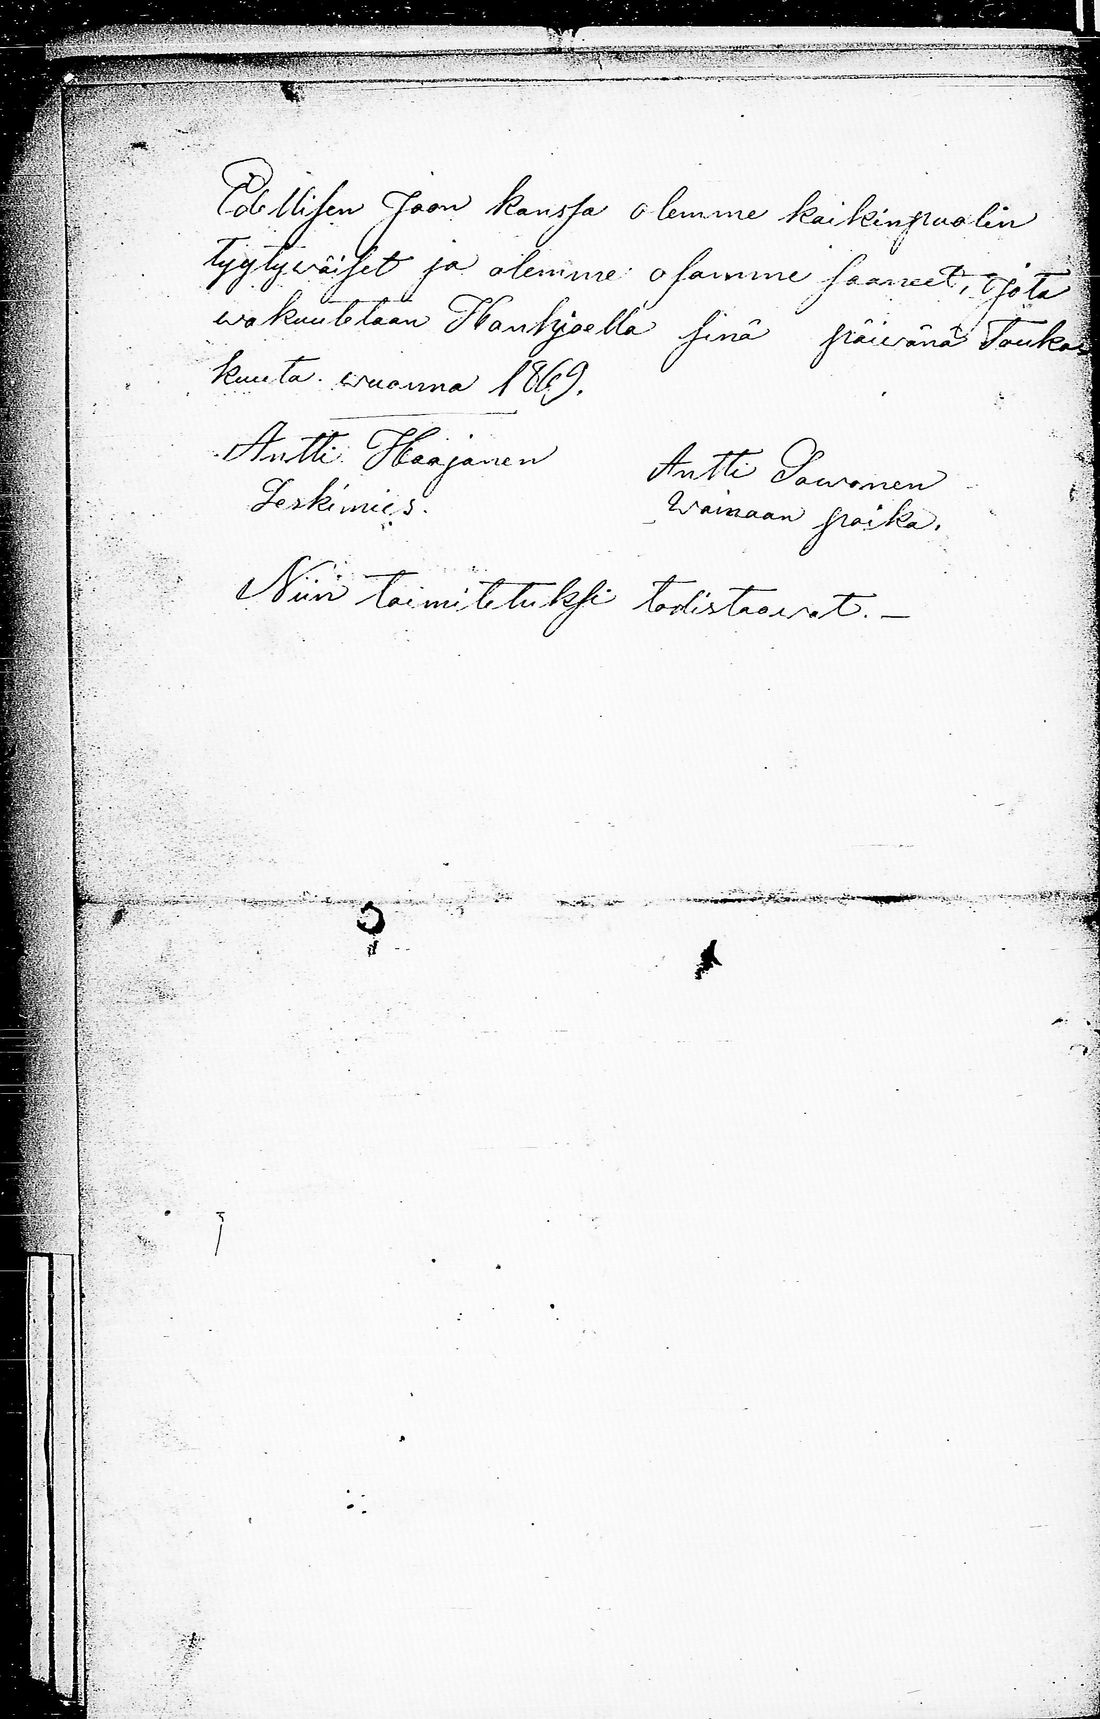 Edellisen Jaon kanssa olemme kaikinpuolin
tyytywäiset ja olemme osamme saaneet, jota
wakuutetaan Hankjaella sinä päiwänä Touko-
kuuta wuonna 1869.
Antti Haajanen Antti Sawonen
Leskimies. Wainaan poika.
Niin toimitetuksi todistaawat. —